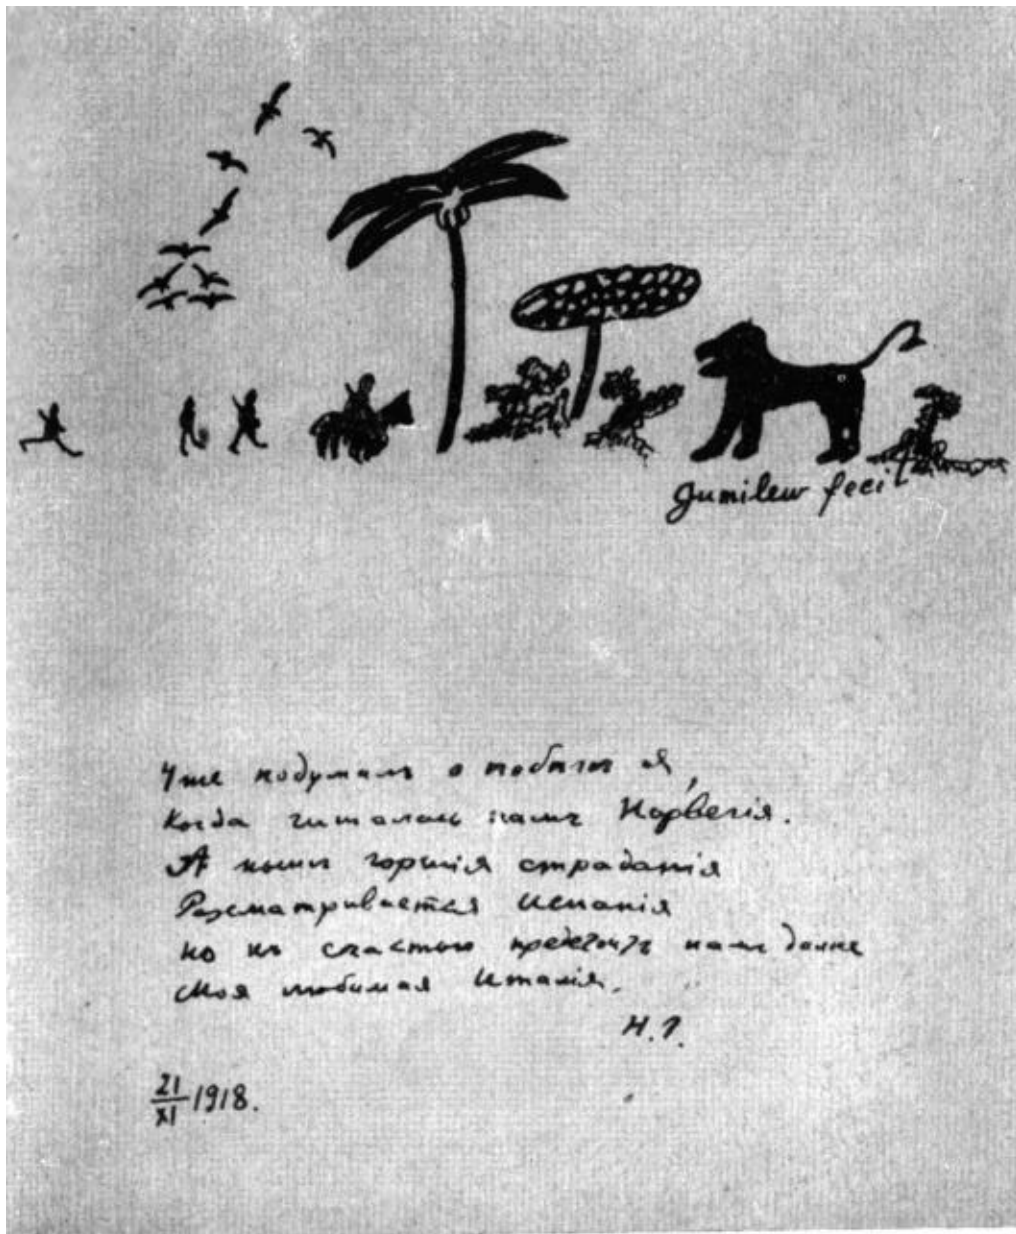 Gumilew fecit
Уже подумалъ о побѣгѣ я,
Когда читалась намъ Норвегія.
А нынѣ горшія страданія
Разсматривается Испанія
Но къ счастью предстоитъ намъ далѣе
Моя любимая Италія.
Н. Г.
21/XI 1918.